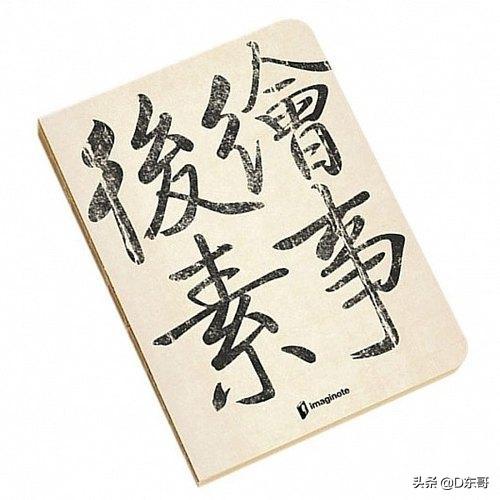 繪事
後素
imaginote
头条 @D东哥